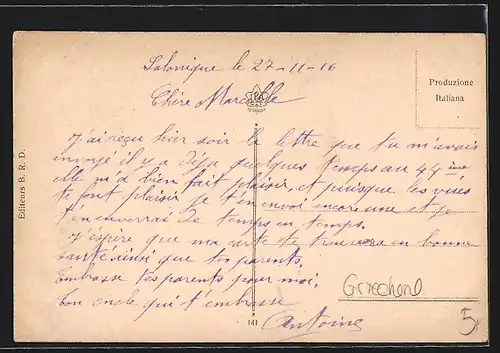 Salonique le 27-11-16
Chère Marcelle
J'ai reçu hier soir la lettre que tu m'avais
envoyé il y a deja quelques temps au 44 ème
elle m'a bien fait plaisir, et puisque les vues
te font plaisir je t'en envoi encore une et je
t'en enverrai de temps en temps.
J'éspère que ma carte te trouvera en bonne
santé ainsi que tes parents.
Embrasse tes parents pour moi,
ton oncle qui t'embrasse
Antoine
Produzione
Italiana
Editeurs B. R. D.
141
Griechenl.
5